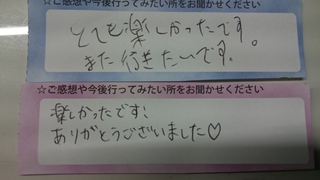 ☆ご感想や今後行ってみたい所をお聞かせください
とても楽しかったです。
また行きたいです。
☆ご感想や今後行ってみたい所をお聞かせください
楽しかったです!
ありがとうございました♡